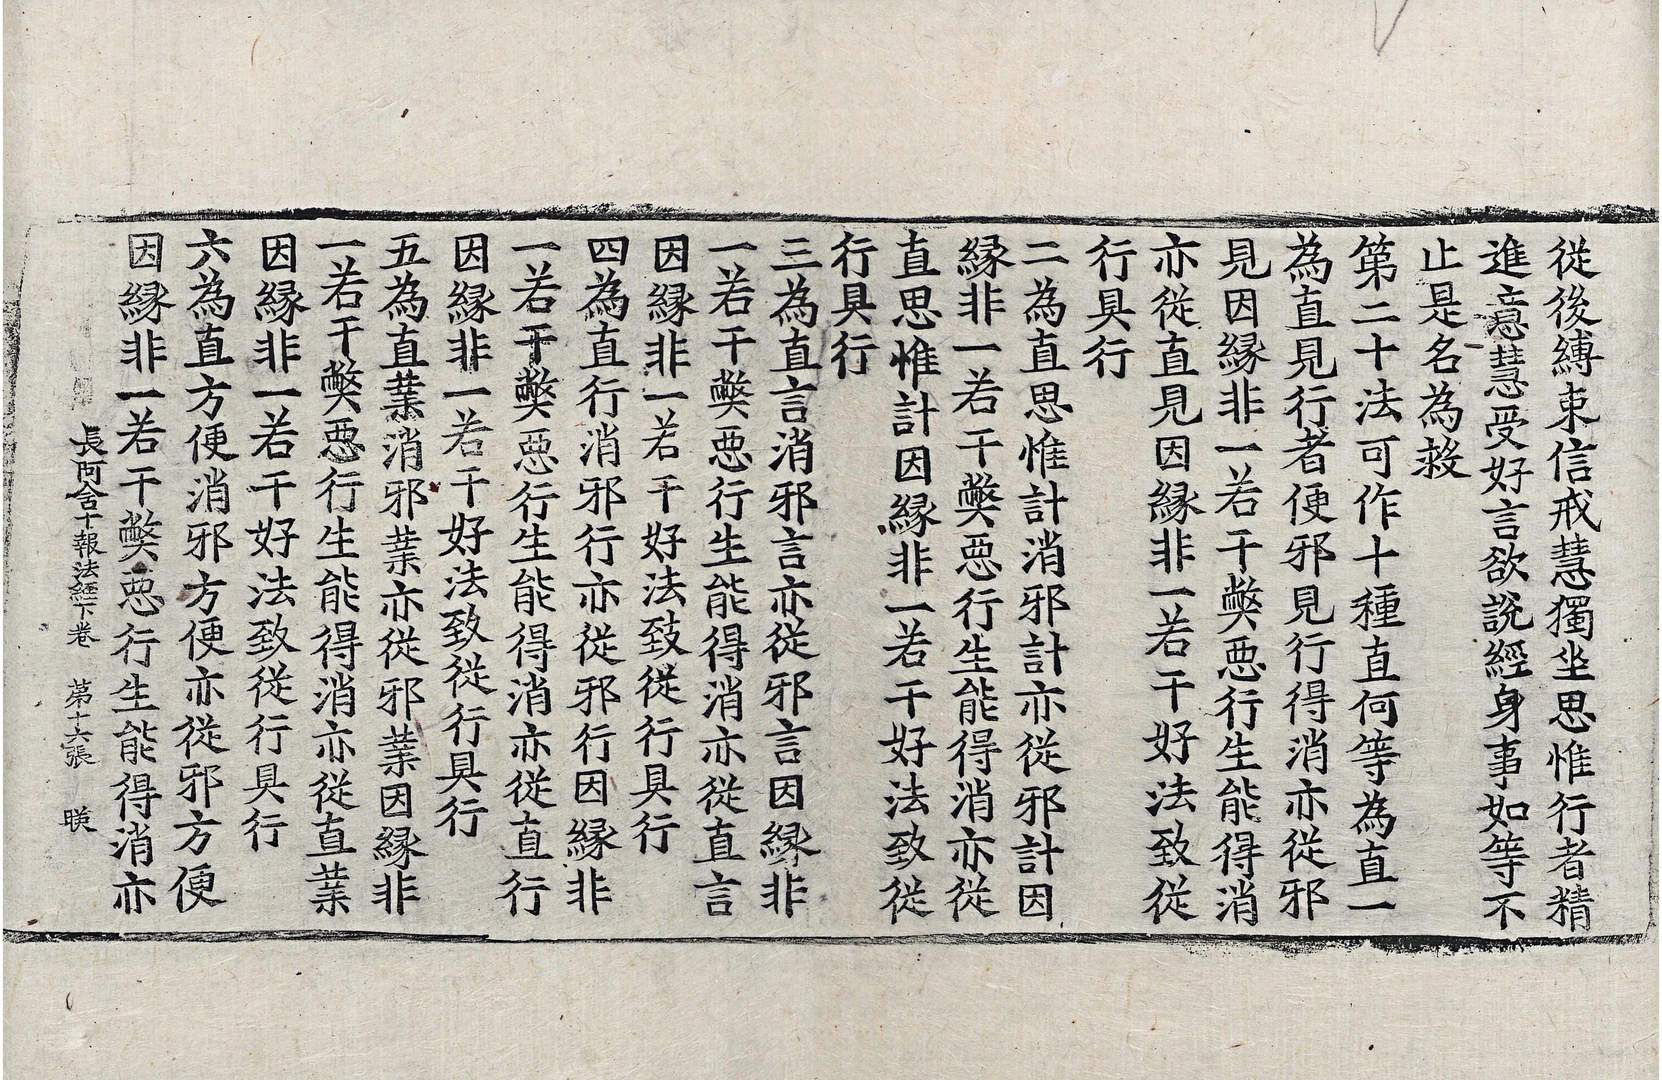 從後縛束信戒慧獨坐思惟行者精
進意慧受好言欲說經身事如等不
止是名為救
第二十法可作十種直何等為直一
為直見行者便邪見行得消亦從邪
見因緣非一若干弊惡行生能得消
亦從直見因緣非一若干好法致從
行具行
二為直思惟計消邪計亦從邪計因
緣非一若干弊惡行生能得消亦從
直思惟計因緣非一若干好法致從
行具行
三為直言消邪言亦從邪言因緣非
一若干弊惡行生能得消亦從直言
因緣非一若干好法致從行具行
四為直行消邪行亦從邪行因緣非
一若干弊惡行生能得消亦從直行
因緣非一若干好法致從行具行
五為直業消邪業亦從邪業因緣非
一若干弊惡行生能得消亦從直業
因緣非一若干好法致從行具行
六為直方便消邪方便亦從邪方便
因緣非一若干弊惡行生能得消亦
長阿含十報法經下卷 第十六張 暎